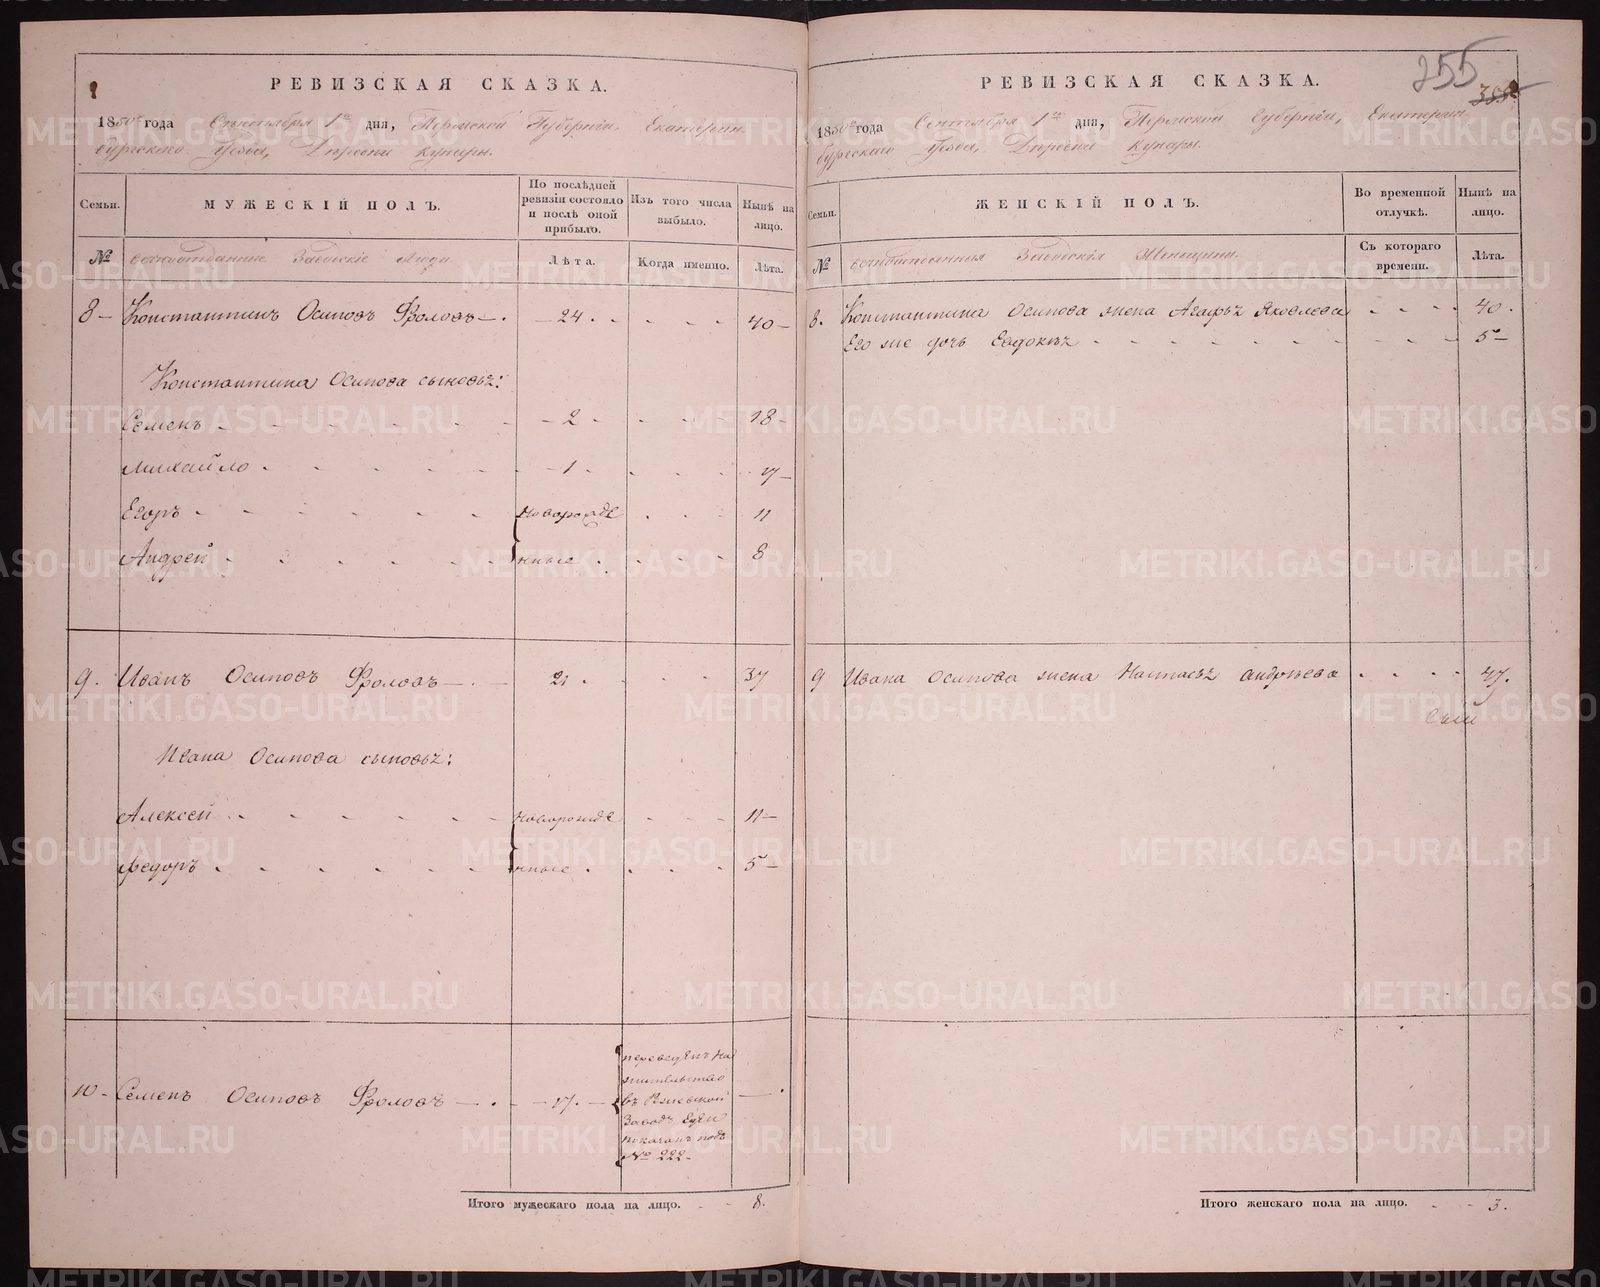 РЕВИЗСКАЯ СКАЗКА.
1850го года Сентября 1го дня, Пермской Губерніи, Екатерин
бургскаго Уѣзда, Деревни Кунары.
Семьи.
МУЖЕСКІЙ ПОЛЪ.
По послѣдней ревизіи состояло и послѣ оной прибыло.
Изъ того числа выбыло.
Нынѣ на лицо.
№
Заводскіе Люди
Лѣта.
Когда именно.
Лѣта.
8 Константинъ Осиповъ Фроловъ 24 40
Константина Осипова сыновья:
Семенъ 2 18
Михайло 1 17
Егоръ новорожде 11
Андрей нные 8
9. Иванъ Осиповъ Фроловъ 21 37
Ивана Осипова сыновья:
Алексей новорожде 11
Федоръ нные 5
10 Семенъ Осиповъ Фроловъ 17
переведенъ на
жительство
въ
Заводъ
показанъ подъ
№ 222.
Итого мужескаго пола на лицо. 8.
255
355
РЕВИЗСКАЯ СКАЗКА.
1850го года Сентября 1го дня, Пермской Губерніи, Екатерин
бургскаго Уѣзда, Деревни Кунары.
Семьи.
ЖЕНСКІЙ ПОЛЪ.
Во временной отлучкѣ.
Нынѣ на лицо.
№
Заводскія Женщины
Съ котораго времени.
Лѣта.
8. Константина Осипова жена Агафья Яковлева 40
Его же дочь Евдокья 5
9 Ивана Осипова жена Настасья Андрѣева 47.
Итого женскаго пола на лицо. 3.
METRIKI.GASO-URAL.RU